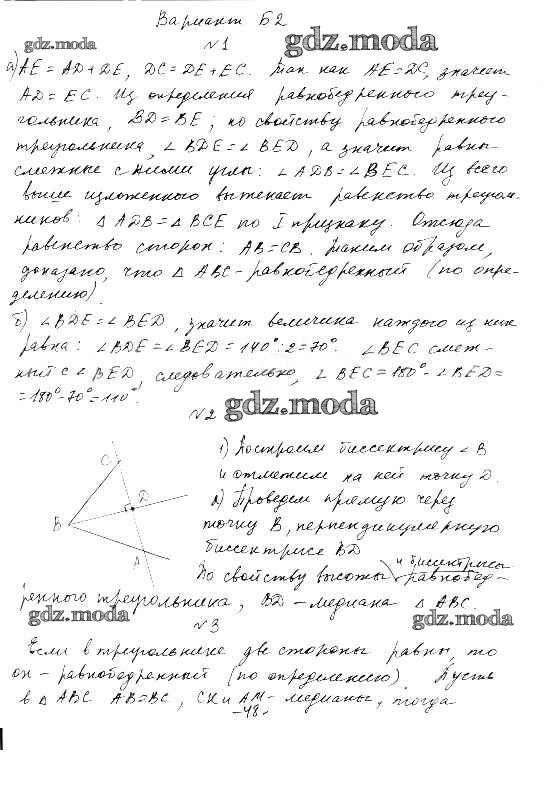 Вариант Б2
gdz.moda №1 gdz.moda
а) AE = AD + DE, DC = DE + EC. Так как AE = DC, значит
AD = EC. Из определения равнобедренного треу-
гольника, BD = BE; по свойству равнобедренного
треугольника, ∠BDE = ∠BED, а значит равны
смежные с ними углы: ∠ADB = ∠BEC. Из всего
выше изложенного вытекает равенство треуголь-
ников: △ADB = △BCE по I признаку. Отсюда
равенство сторон: AB = CB. Таким образом,
доказано, что △ABC - равнобедренный (по опре-
делению).
б) ∠BDE = ∠BED, значит величина каждого из них
равна: ∠BDE = ∠BED = 140° : 2 = 70°. ∠BEC смеж-
ный с ∠BED, следовательно, ∠BEC = 180° - ∠BED =
= 180° - 70° = 110°.
№2 gdz.moda
C
D
B
A
1) Построим биссектрису ∠B
и отметим на ней точку D.
2) Проведем прямую через
точку B, перпендикулярную
биссектрисе BD
По свойству высоты и биссектрисы равнобед-
ренного треугольника, BD - медиана △ABC.
gdz.moda №3 gdz.moda
Если в треугольнике две стороны равны, то
он - равнобедренный (по определению). Пусть
в △ABC AB = BC, CK и AM - медианы, тогда
-48-